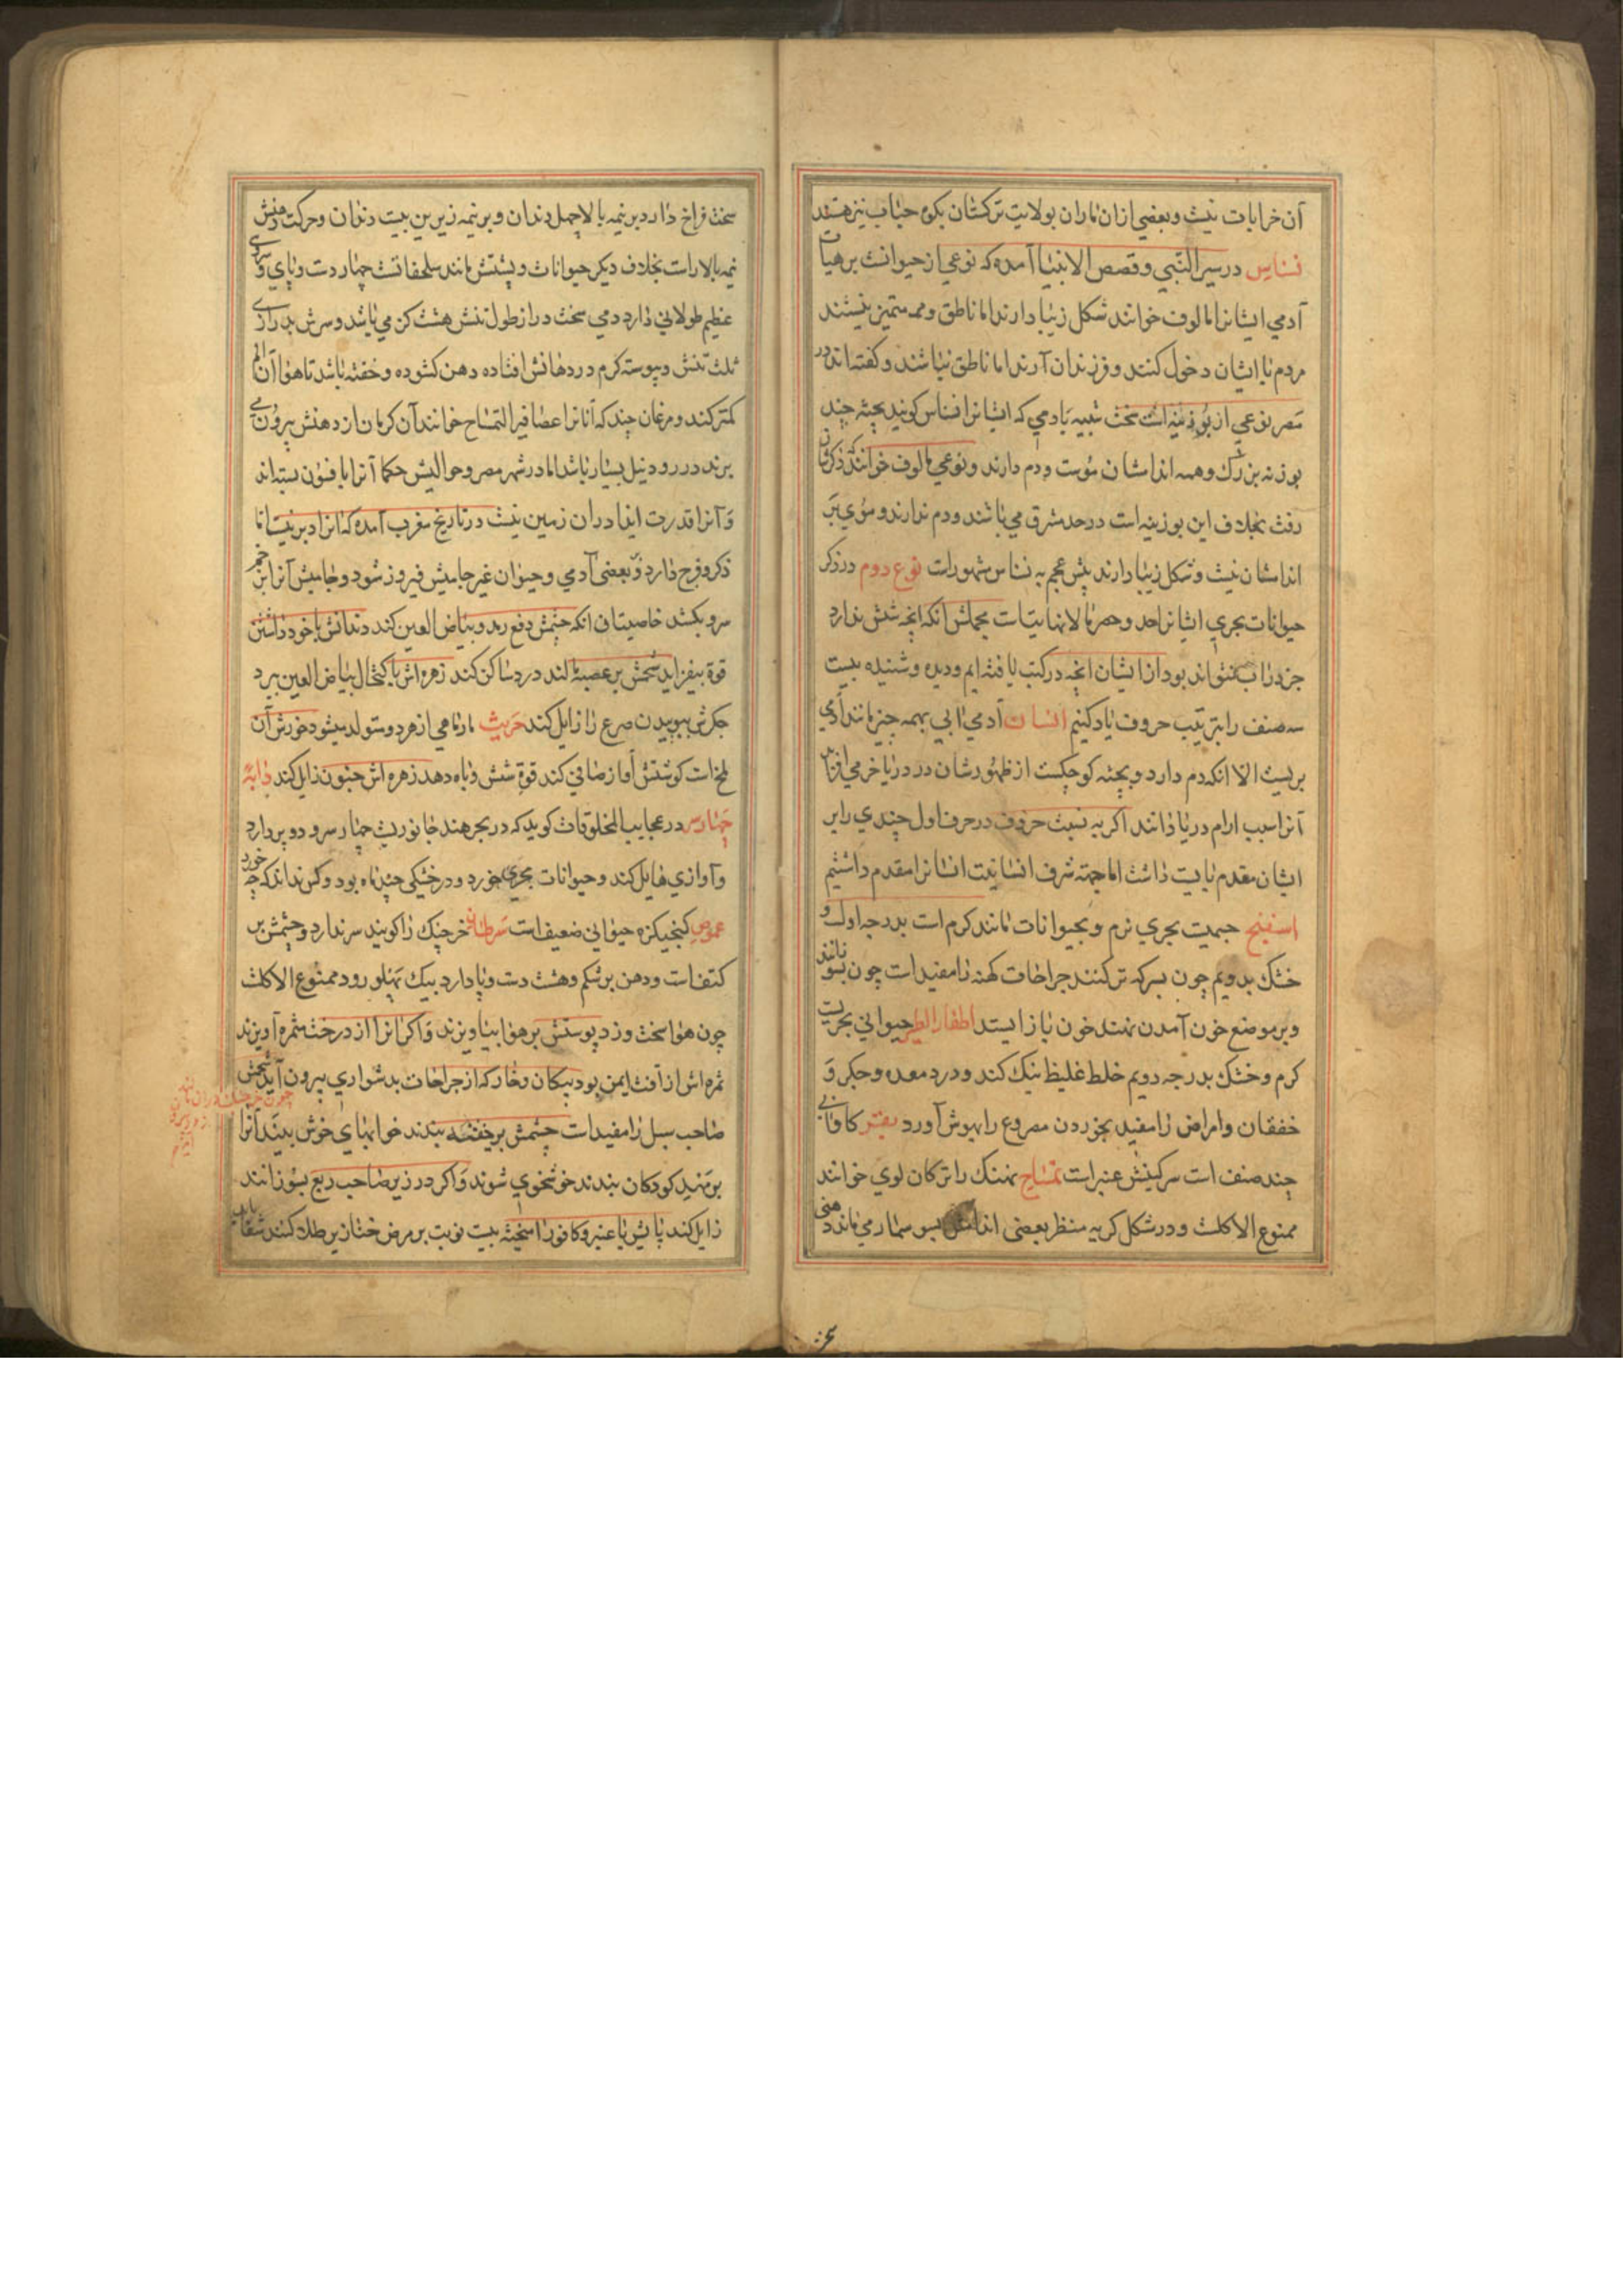 آن خرابات نیست و بعضی از ان ماران بولایت ترکستان بکوه حباب نیز هستند
نسناس در سیر النبی و قصص الانبیا آمده که نوعی از حیوانست بر هیات
آدمی ایشانرا مالوف خوانند شکل زیبا دارند اما ناطق و ممتمیز نیستند
مردم با ایشان دخول کنند و فرزندان آرند اما ناطق نباشند و کفته اند در
مصر نوعی از بوزینه است سخت شبیه بادمی که ایشانرا نسناس کویند بجثه چند
بوزنه بزرک و همه اندامشان مویست و دم دارند و نوعی مالوف خوانند ذکرشان
رفت بخلاف این بوزینه است در حد مشرق می باشند و دم ندارند و موی بر
اندامشان نیست و شکل زیبا دارند پیش عجم به نسناس مشهورات نوع دوم در ذکر
حیوانات بحری ایشانرا حد و حصر بالانهایتیات مجملش انکه انچه شش ندارد
جز در آب نتواند بود از ایشان انچه در کتب یافته ایم و دیده و شنیده بیست
سه صنف را بترتیب حروف یاد کنیم انسان آدمی آبی بهمه چیز مانند آدمی
بریست الا انکه دم دارد و بجثه کوچکست از ظهور شان در دریا خرمی افزاید
آنرا سبب ارام دریا دانند اکر به نسبت حروف در حرف اول چندی را بر
ایشان مقدم بایست داشت اما جهته شرف انسانیت انسانرا مقدم داشتیم
اسفنج جسمیت بحری نرم و بحیوانات مانند کرم است بدرجه اول و
خشک بدویم چون بسرکه تر کنند جراحات کهنه را مفید است چون بسوزانند
و بر موضع خون آمدن نهند خون باز ایستد اظفار الطیب حیوانی بحریست
کرم و خشک بدرجه دویم خلط غلیظ نیک کند و درد معده و جکر و
خفقان و امراض را مفید بخوردن مصروع را بهوش آورد بقر کاو آبی
چند صنف است سرکینش عنبر است تمساح نهنک را ترکان لوی خوانند
ممنوع الاکلست و در شکل کریه منظر بعضی اندامش بسوسمار می ماند دهنی
سخت فراخ دارد بر نیمه بالا چهل دندان و بر نیمه زیرین بیست دندان و حرکت دهنش
نیمه بالا راست بخلاف دیکر حیوانات و پشتش مانند سلحفاتست چهار دست و پای و سری
عظیم طولانی دارد دمی سخت دراز طول تنش هشت کز می باشد و سرش بدرازی
ثلث تنش و پیوسته کرم در دهانش افتاده دهن کشوده و خفته باشد تا هوا آن الم
کمتر کند و مرغان چند که آنانرا عصافیر التمساح خوانند آن کرمان از دهنش بیرون می
برند در رود نیل بسیار باشد اما در شهر مصر و حوالیش حکما آنرا بافسون بسته اند
و آنرا قدرت ایذا دران زمین نیست در تاریخ مغرب آمده که آنرا دبر نیست اما
ذکر و فرج دارد و بعضی آدمی و حیوان غیر جامیش فیروز شود و جامیش آنرا بزخم
سرو بکشد خاصیتان انکه چشمش دفع رمد و بیاض العین کند دندانش با خود داشتن
قوة بیفزاید شحمش بر عصبه مالند درد ساکن کند زهره اش باکتحال بیاض العین برد
جکرش ببوییدن صرع را زایل کند حریش مارماهی از هر دو متولد میشود خورش آن
لخات کوشتش آواز صافی کند قوة شش و باه دهد زهره اش جنون زایل کند دابه
چهارسر در عجایب المخلوقات کوید که در بحر هند جانوریست چهار سر و دو پر دارد
و آوازی هایل کند و حیوانات بحری خورد و در خشکی چند ماه بود و کس نداند که چه خورد
عموص کنجیکزه حیوانی ضعیف است سرطان خرچنک را کویند سر ندارد و چشمش بر
کتف است و دهن بر شکم و هشت دست و پا دارد بیک پهلو رود ممنوع الاکلست
چون هوا سخت وزد پوستش بر هوا بیاویزند و اکر آنرا از درخت ثمره آویزند
ثمره اش از آفت ایمن بود پیکان و خار که از جراحات بدشواری بیرون آید شحمش
صاحب سبل را مفید است چشمش بر خفته بندند خوابهای خوش بیند آنرا
بر مهد کودکان بندند خوشخوی شوند و اکر در زیر صاحب ربع بسوزانند
زایل کند پایش با عنبر و کافور آمیخته بیست نوبت بر مرض خنازیر طلا کنند شفا یابد